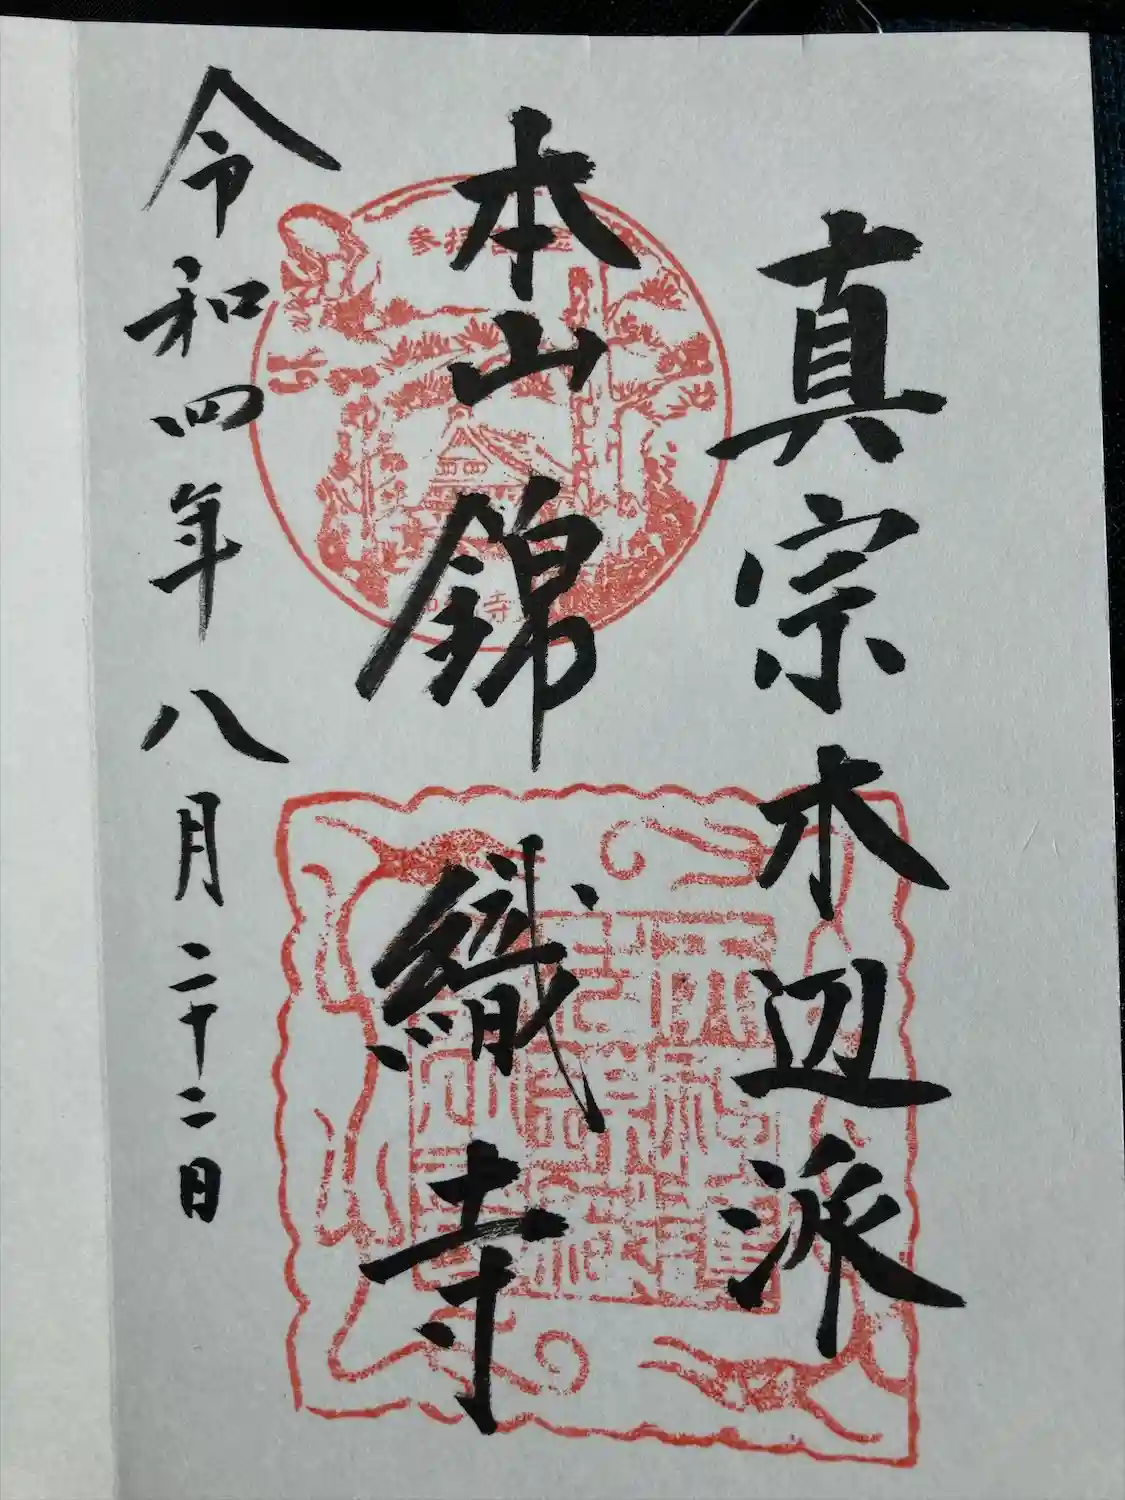 真宗木辺派
本山錦織寺
令和四年八月二十二日
参拝記念